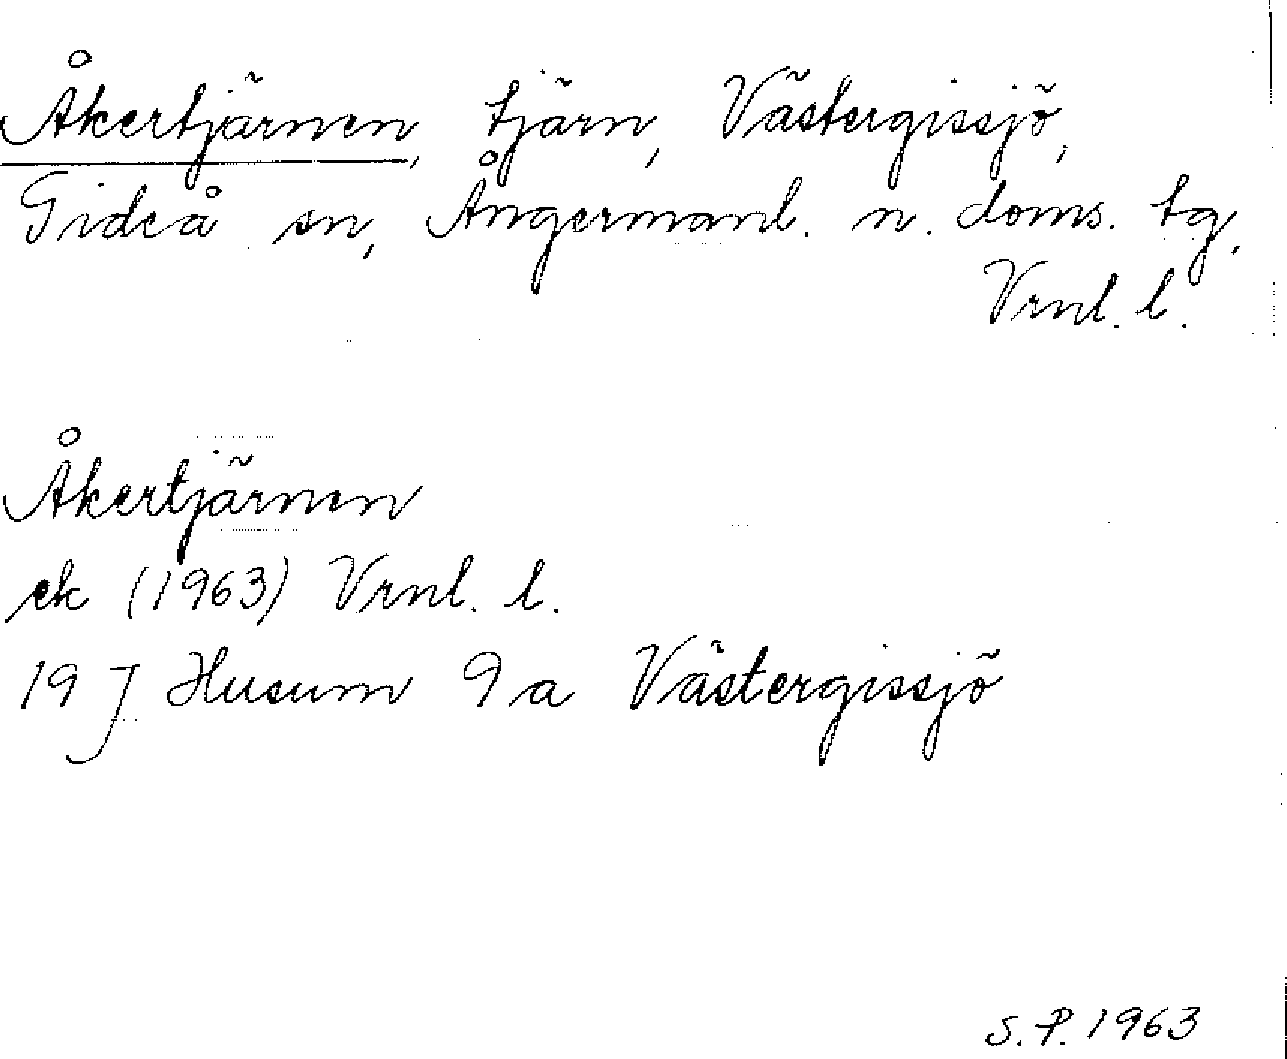 Åkertjärnen, tjärn, Västergissjö,
Gideå sn, Ångermanl. n. doms. tg,
Vrnl. l.
Åkertjärnen
ek (1963) Vrnl. l.
19 J Husum 9 a Västergissjö
S. P. 1963